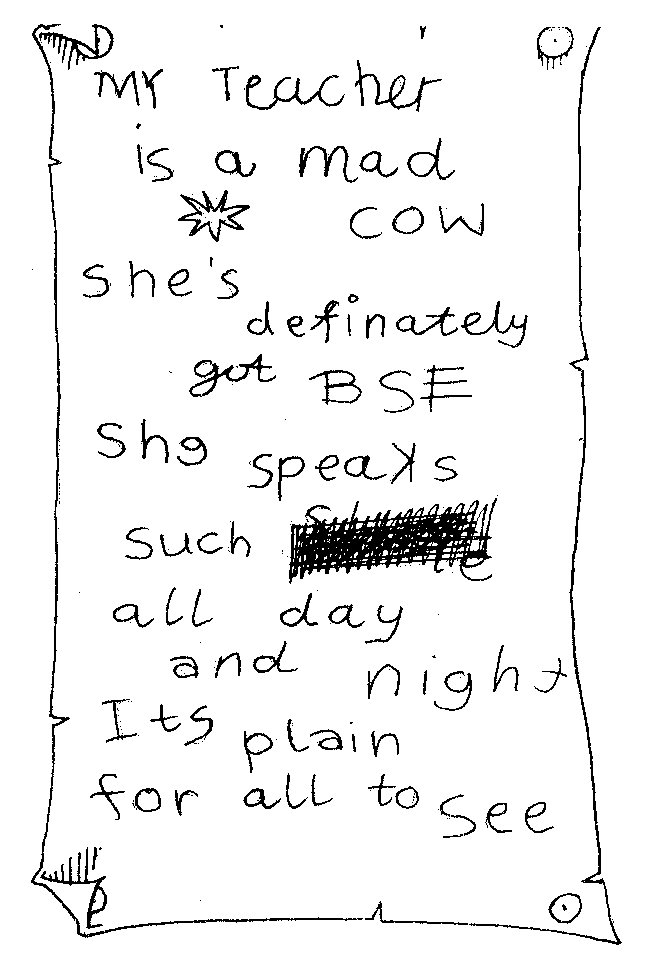 My Teacher
is a mad
cow
she's
definately
got BSE
She speaks
such
all day
and night
Its plain
for all to see